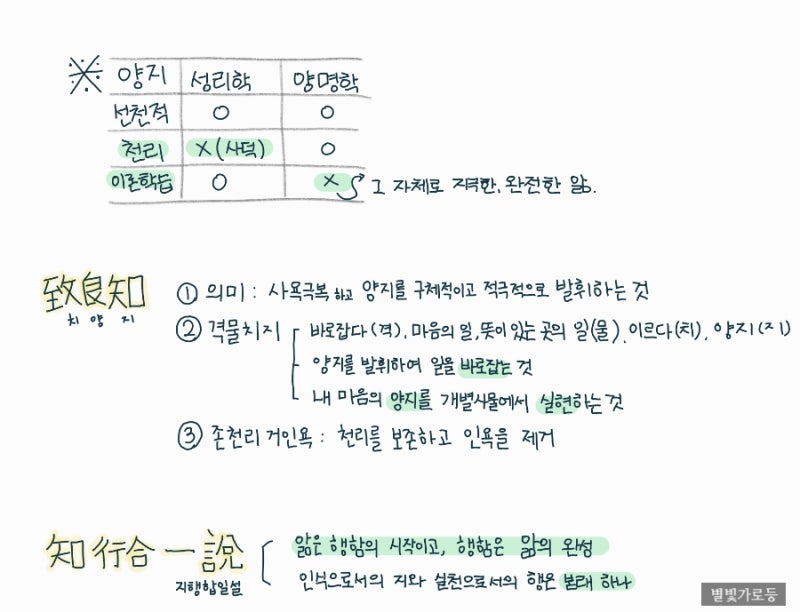 ※ 양지 성리학 양명학
선천적 O O
천리 X(사덕) O
이론학습 O X 그 자체로 지극한, 완전한 앎.
致良知 ① 의미 : 사욕극복하고 양지를 구체적이고 적극적으로 발휘하는 것
치양지
② 격물치지 바로잡다(격), 마음의 일, 뜻이 있는 곳의 일(물), 이르다(치), 양지(지)
양지를 발휘하여 일을 바로잡는 것
내 마음의 양지를 개별사물에서 실현하는 것
③ 존천리거인욕 : 천리를 보존하고 인욕을 제거
知行合一說 앎은 행함의 시작이고, 행함은 앎의 완성
지행합일설 인식으로서의 지와 실천으로서의 행은 본래 하나
별빛가로등